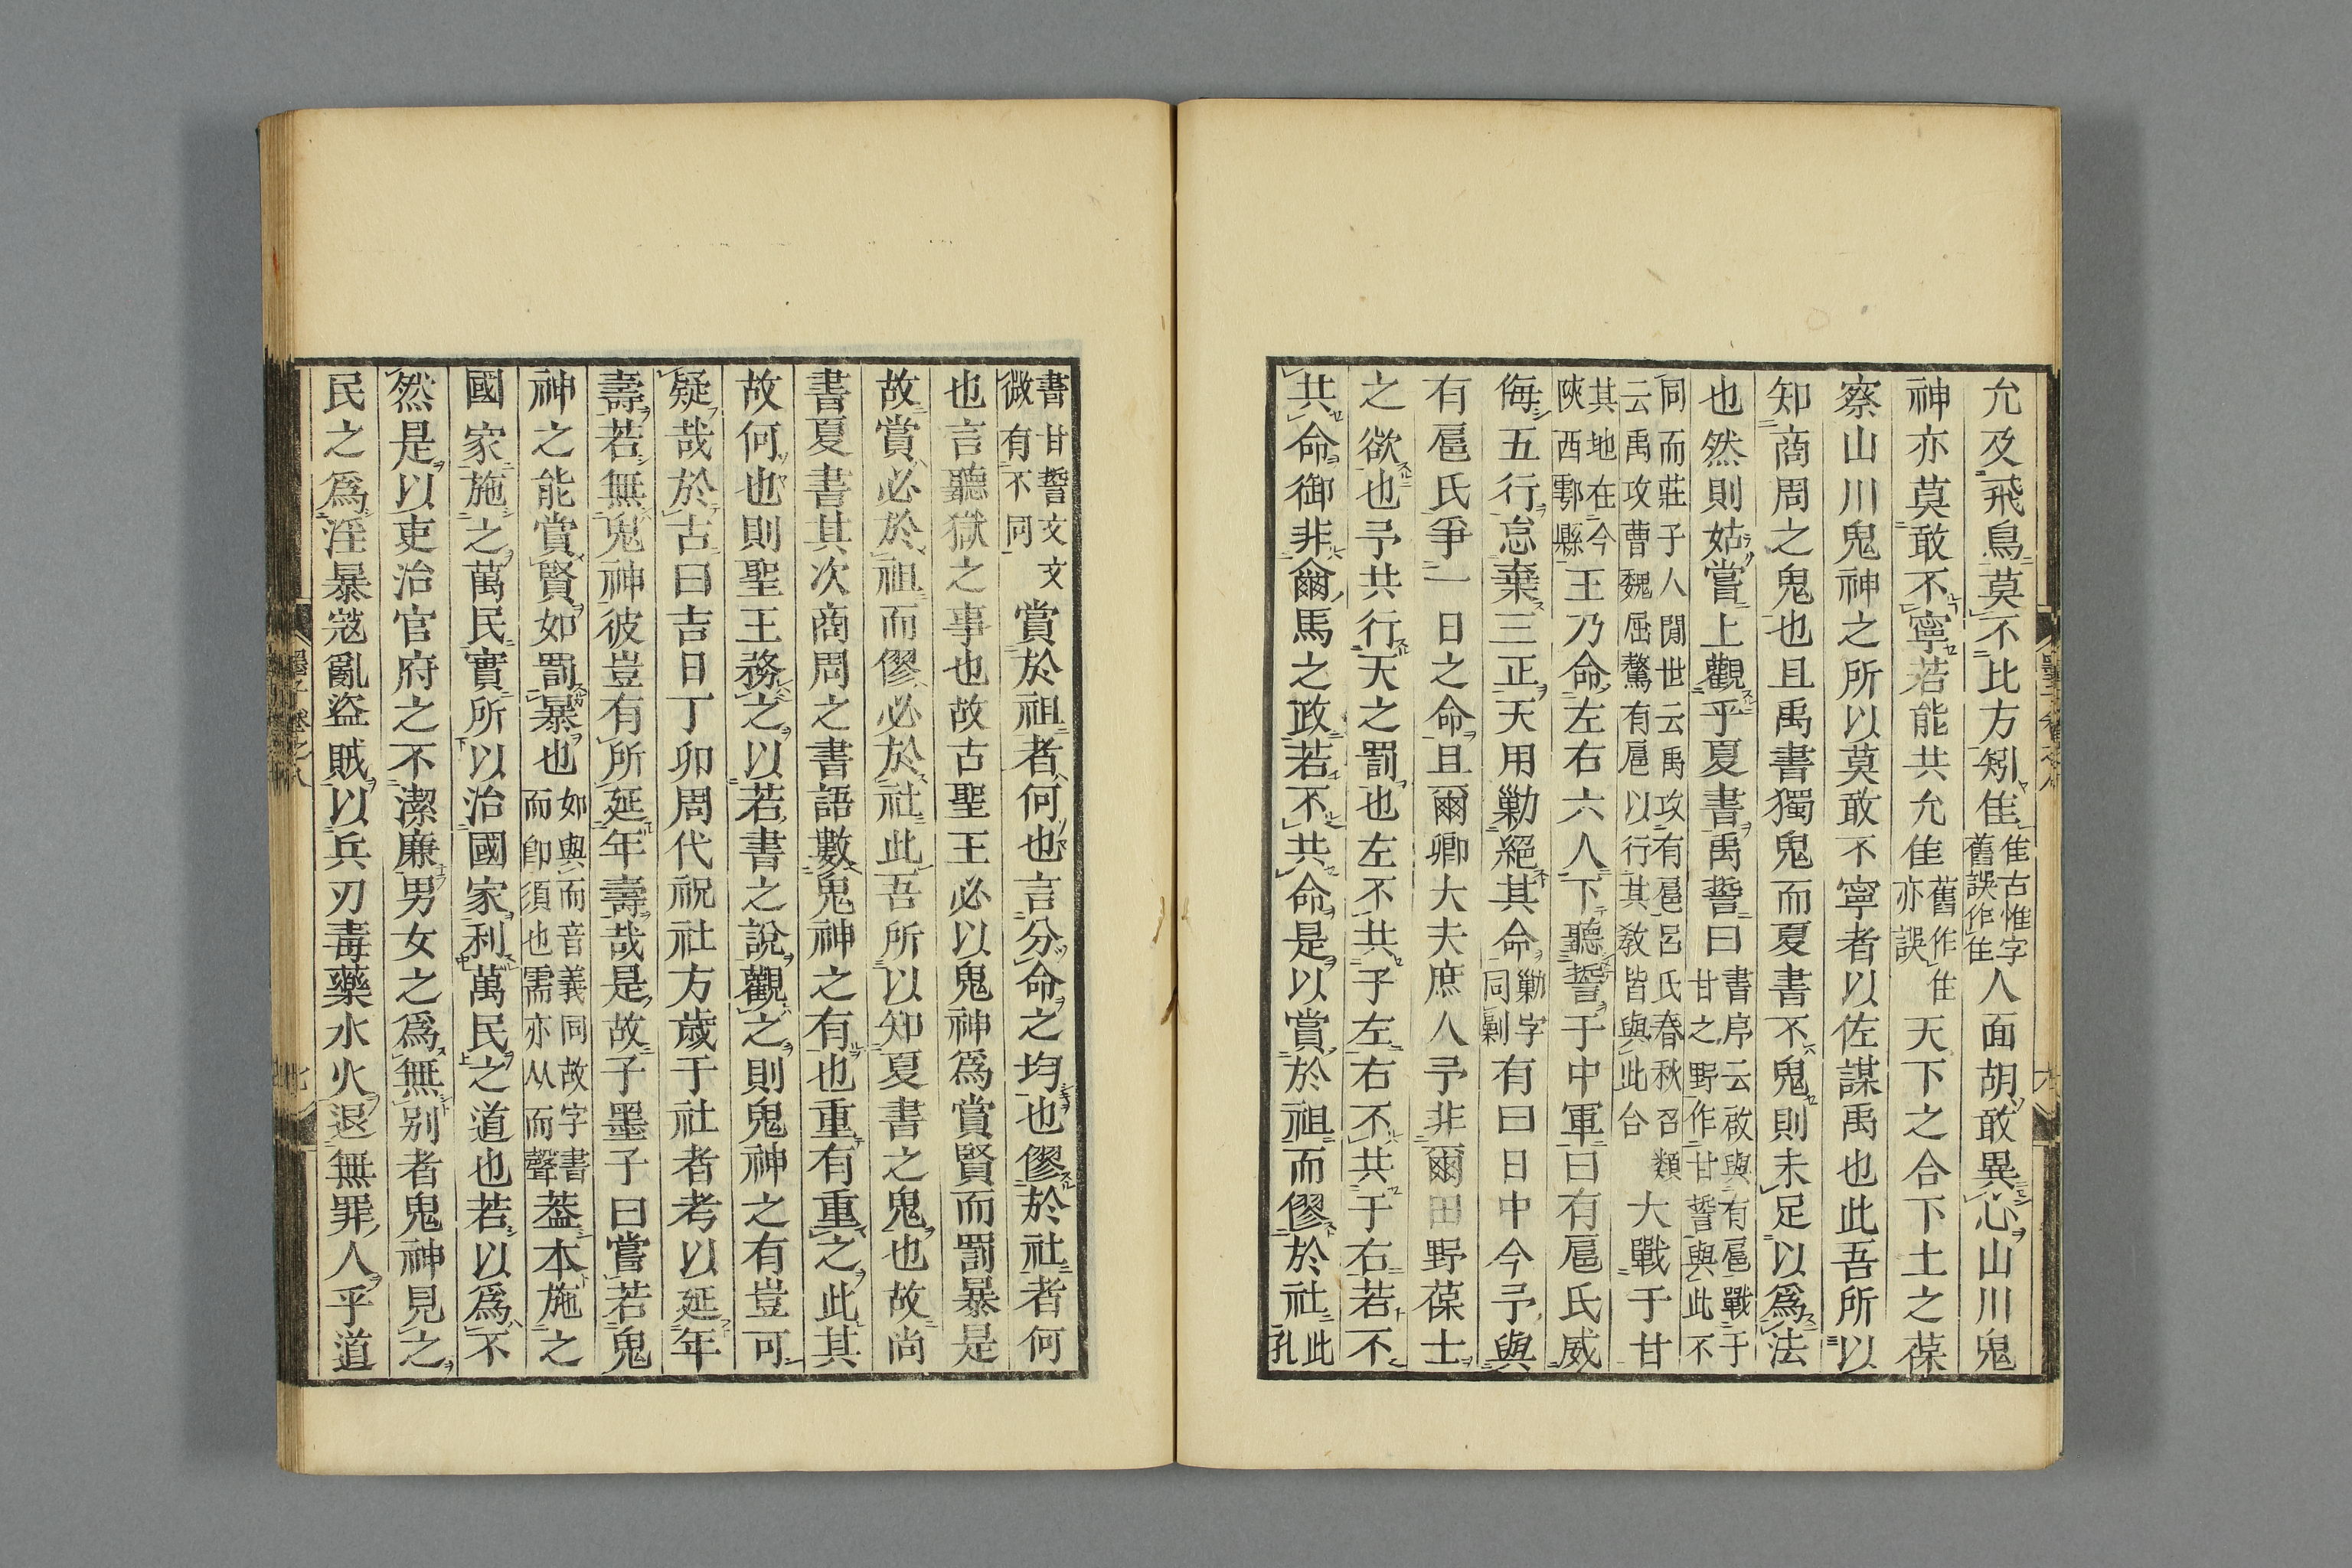 允及飛鳥莫不比方矧隹隹古惟字舊誤作住人面胡敢異心山川鬼
神亦莫敢不寧若能共允隹舊作住亦誤天下之合下土之葆
察山川鬼神之所以莫敢不寧者以佐謀禹也此吾所以
知商周之鬼也且禹書獨鬼而夏書不鬼則未足以爲法
也然則姑嘗上觀乎夏書禹誓曰書序云啟與有扈戰于甘之野作甘誓與此不
同而莊子人閒世云禹攻有扈呂氏春秋召類云禹攻曹魏屈驁有扈以行其敎皆與此合大戰于甘
其地在今陝西鄠縣王乃命左右六人下聽誓于中軍曰有扈氏威
侮五行怠棄三正天用勦絕其命勦字同剿有曰日中今予與
有扈氏爭一日之命且爾卿大夫庶人予非爾田野葆士
之欲也予共行天之罰也左不共于左右不共于右若不
共命御非爾馬之政若不共命是以賞於祖而僇於社此孔
書甘誓文文微有不同賞於祖者何也言分命之均也僇於社者何
也言聽獄之事也故古聖王必以鬼神爲賞賢而罰暴是
故賞必於祖而僇必於社此吾所以知夏書之鬼也故尚
書夏書其次商周之書語數鬼神之有也重有重之此其
故何也則聖王務之以若書之說觀之則鬼神之有豈可
疑哉於古曰吉日丁卯周代祝社方歲于社者考以延年
壽若無鬼神彼豈有所延年壽哉是故子墨子曰嘗若鬼
神之能賞賢如罰暴也如與而音義同故字書而卽須也需亦从而聲葢本施之
國家施之萬民實所以治國家利萬民之道也若以爲不
然是以吏治官府之不潔廉男女之爲無別者鬼神見之
民之爲淫暴寇亂盜賊以兵刃毒藥水火退無罪人乎道
墨子卷之八